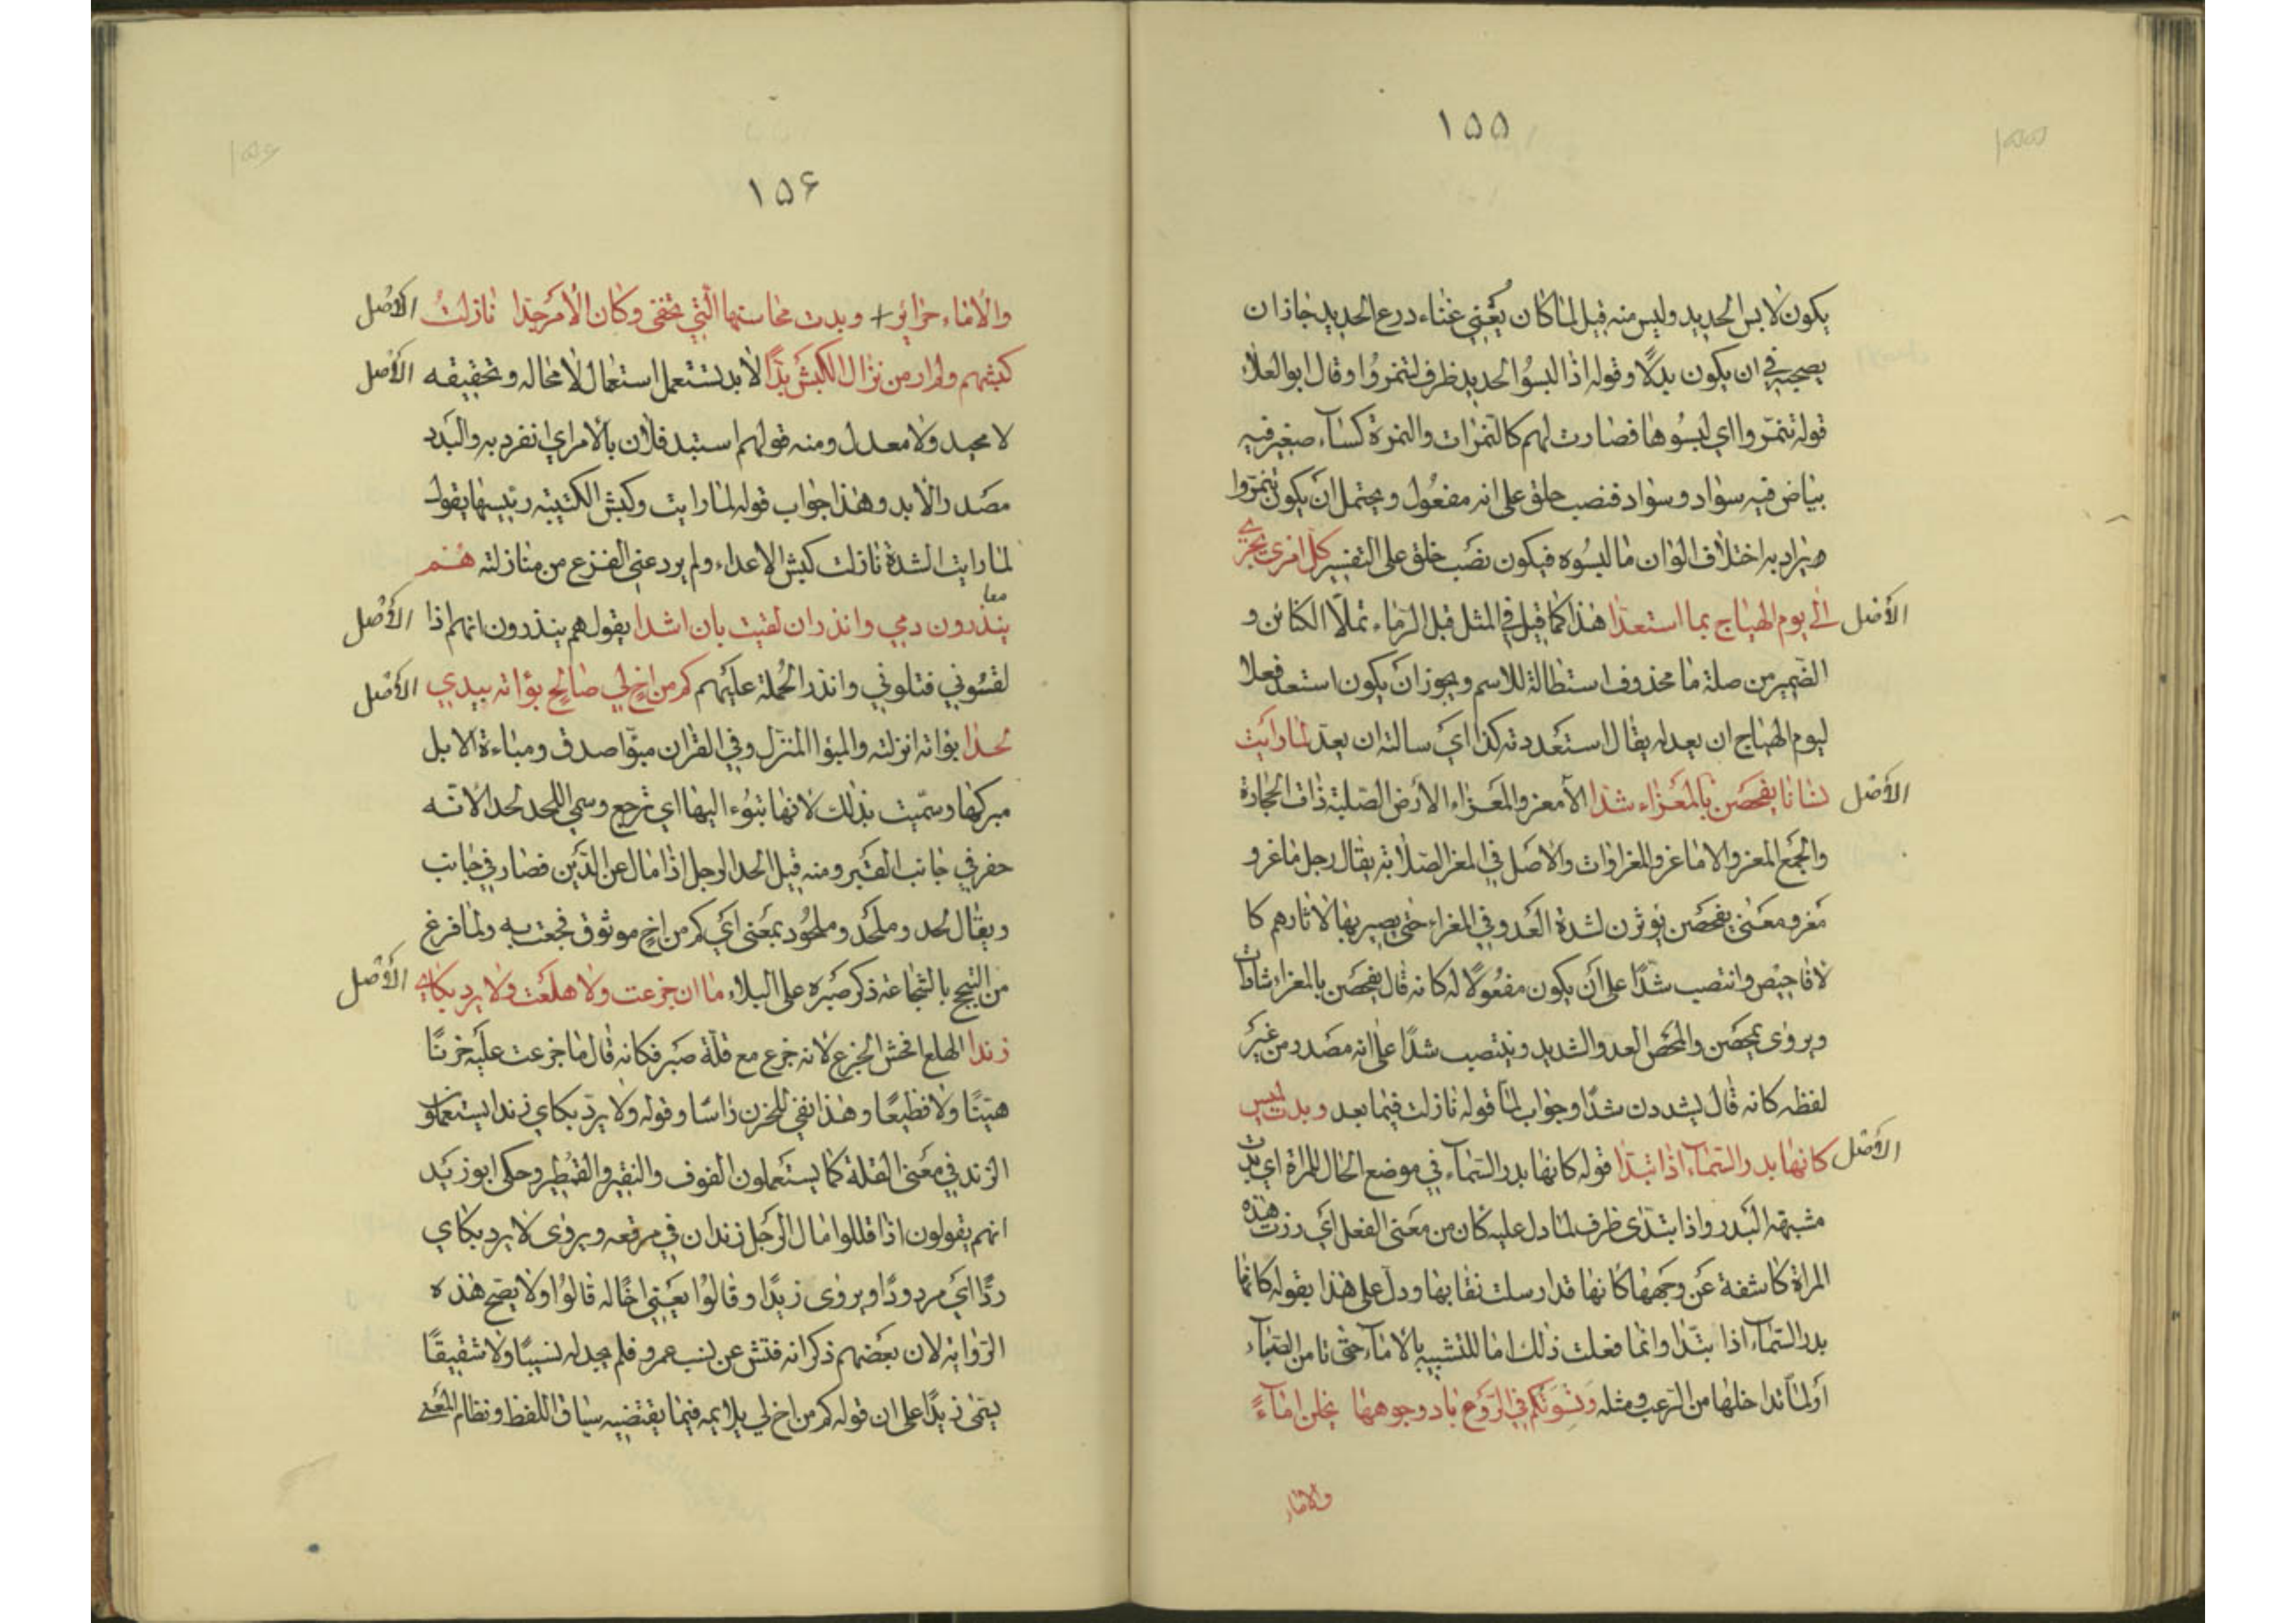 ١٥٥
يكون لابس الحديد وليس منه قيل لما كان يغني غناء درع الحديد جاز ان
يصحبه في ان يكون بدلًا وقوله اذا لبسوُا الحديد ظرف لتنمروُا وقال ابو العلاء
قوله تنمّروا اي لبسُوها فصارت لهم كالنمرات والنمرة كساء صغير فيه
بياض فيه سواد وسواد فنصب حلق على انه مفعُول ويحتمل ان يكون تنمّروا
يراد به اختلاف الوان ما لبسُوه فيكون نصَب خلق على التفسير كلّ امرئ يجري
الأصْل الى يوم الهياج بما استعدّا هذا كما قيل في المثل قبل الرماء تملأ الكنائن و
الضّمير من صلة ما محذوف استطالة للاسم ويجوز ان يكون استعد فعلا
ليوم الهياج ان يعدله يقال استعددته كذا اي سالته ان يعدّ لما رايت
الأصْل نسانا يفحصن بالمعزاء شدا الأمعز والمعَزاء الأرض الصّلبة ذات الحجارة
والجمع المعز والاماعز والمعزاوات والاصل في المعز الصّلابة يقال رجل ماعز و
مَعز ومعنى يفحصن يؤثرن لشدة العَدو في المعزاء حتى يصير بها لاثارهم كا
لافاحيص وانتصب شدًّا على أن يكون مفعُولًا له كانه قال يفحصن بالمعزاء شادات
ويروى يمحصن والمحص العدو الشديد وينتصب شدًّا على انه مصدر من غير
لفظه كانه قال يشددن شدًّا وجواب لمّا قوله نازلت فيما بعد وبدت لميس
الأصْل كانها بدر السّماء اذا تبدّا قوله كانها بدر السّماء في موضع الحال للمراة اي بدت
مشبهة البَدر واذا تبدّى ظرف لما دل عليه كان من معنى الفعل اي رزت هذه
المراة كاشفة عن وجهها كانها قد ارسلت نقابها ودل على هذا بقوله كانها
بدر السّماء اذا تبدّا وانما فعلت ذلك اما للتشبيه بالاماء حتى تامن السّباء
اولما تداخلها من الرّعب ومثله ونسوَتكم في الرّوع باد وجوهها يخلن اماءً
والاماء
١٥۶
والأماء حرائر + وبدت محاسنها الّتي تخفى وكان الأمر جدا نازلتُ الأصْل
كبشهم ولم ار من نزال الكبش بدًّا لابد تستعمل استعمال لامحاله وتحقيقه الأصْل
لا محيد ولا معدل ومنه قولهم استبد فلان بالامر اي انفرد به والبدد
مصَدر الأبد وهذا جواب قوله لما رايت وكبش الكتيبة رئيسها يقول
لما رايت الشدة نازلت كبش الاعداء ولم يردعني الفزع من منازلته هُم
معا
ينذرون دمي وانذر ان لقيت بان اشدا يقول هم ينذرون انهم اذا الأصْل
لقسُوني قتلوني وانذر الحُملة عليهم كم من اخ لي صالح بوّاته بيدي الأصْل
لحدا بوّاته انزلته والمبوّا المنزل وفي القران مبوّا صدق ومباءة الابل
مبركها وسمّيت بذلك لانها تبُوء اليها اي ترجع وسمي اللحد لحدا لانّه
حفر في جانب القَبر ومنه قيل الحد الرجل اذا مال عن الدّين فصار في جانب
ويقال لحُد وملحَد وملحُود بمعَنى اي كم من اخ موثوق فجعت به ولما فرغ
من التبجح بالشّجاعة ذكر صبَره على البلاء ما ان جزعت ولا هلعت ولا يرد بكاي الأصْل
زندا الهلع افحش الجزع لانه جزع مع قلّة صبر فكانه قال ما جزعت عليه حزنًا
هيّنًا ولا فظيعًا وهذا نفي للحزن راسًا وقوله ولا يردّ بكاي زندا يستعملون
الزند في معَنى القلة كما يستعملون الفوف والنقير والقطمير وحكى ابو زَيد
انهم يقولون اذا قللوا مال الرجل زندان في مرقعه ويروى لا يرد بكاي
ردًّا اي مردودًا ويروى زيدًا وقالوُا يعَني اخًا له قالوُا ولا يصح هذه
الرّواية لان بعَضهم ذكر انه فتش عن نسب عمرو فلم يجد له نسيبًا ولا شقيقًا
يسمّى زيدًا على ان قوله كم من اخ لي يلايمه فيما يقتضيه سياق اللفظ ونظام المعنى